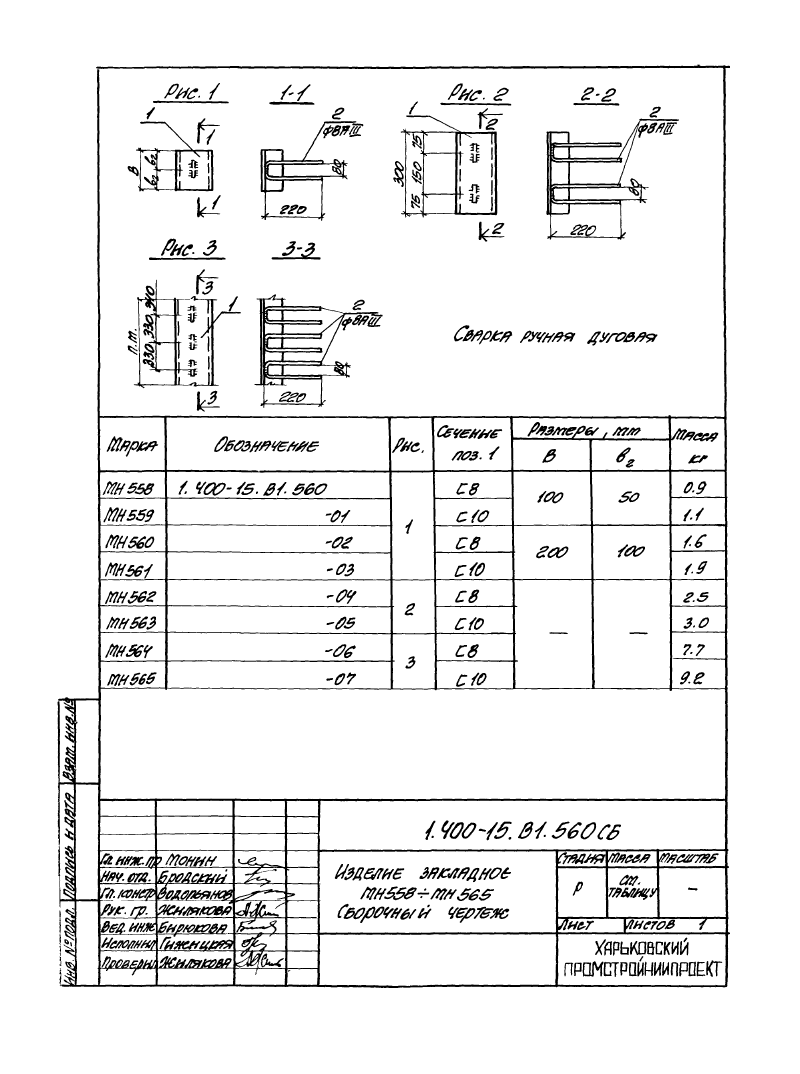 Рис. 1
1-1
Рис. 2
2-2
1
1
2
ф8АIII
В
в2
в2
80
220
1
1
2
300
75
150
75
2
ф8АIII
80
220
2
Рис. 3
3-3
3
1
п.м.
340
330
330
2
ф8АIII
80
220
3
Сварка ручная дуговая
Марка
Обозначение
Рис.
Сечение поз. 1
Размеры, мм
В
в2
Масса кг
МН558 1.400-15.В1.560 1 С8 100 50 0.9
МН559 -01 С10 1.1
МН560 -02 С8 200 100 1.6
МН561 -03 С10 1.9
МН562 -04 2 С8 — — 2.5
МН563 -05 С10 3.0
МН564 -06 3 С8 7.7
МН565 -07 С10 9.2
Взам. инв. №
Подпись и дата
Инв. № подл.
1.400-15.В1.560СБ
Гл. инж. пр Монин
Нач. отд. Бродский
Гл. констр Водопьянов
Рук. гр. Жилякова
Вед. инж Бирюкова
Исполнил Гиженцкая
Проверил Жилякова
Изделие закладное
МН558÷МН565
Сборочный чертеж
Стадия Масса Масштаб
Р см. таблицу —
Лист Листов 1
Харьковский
Промстройниипроект